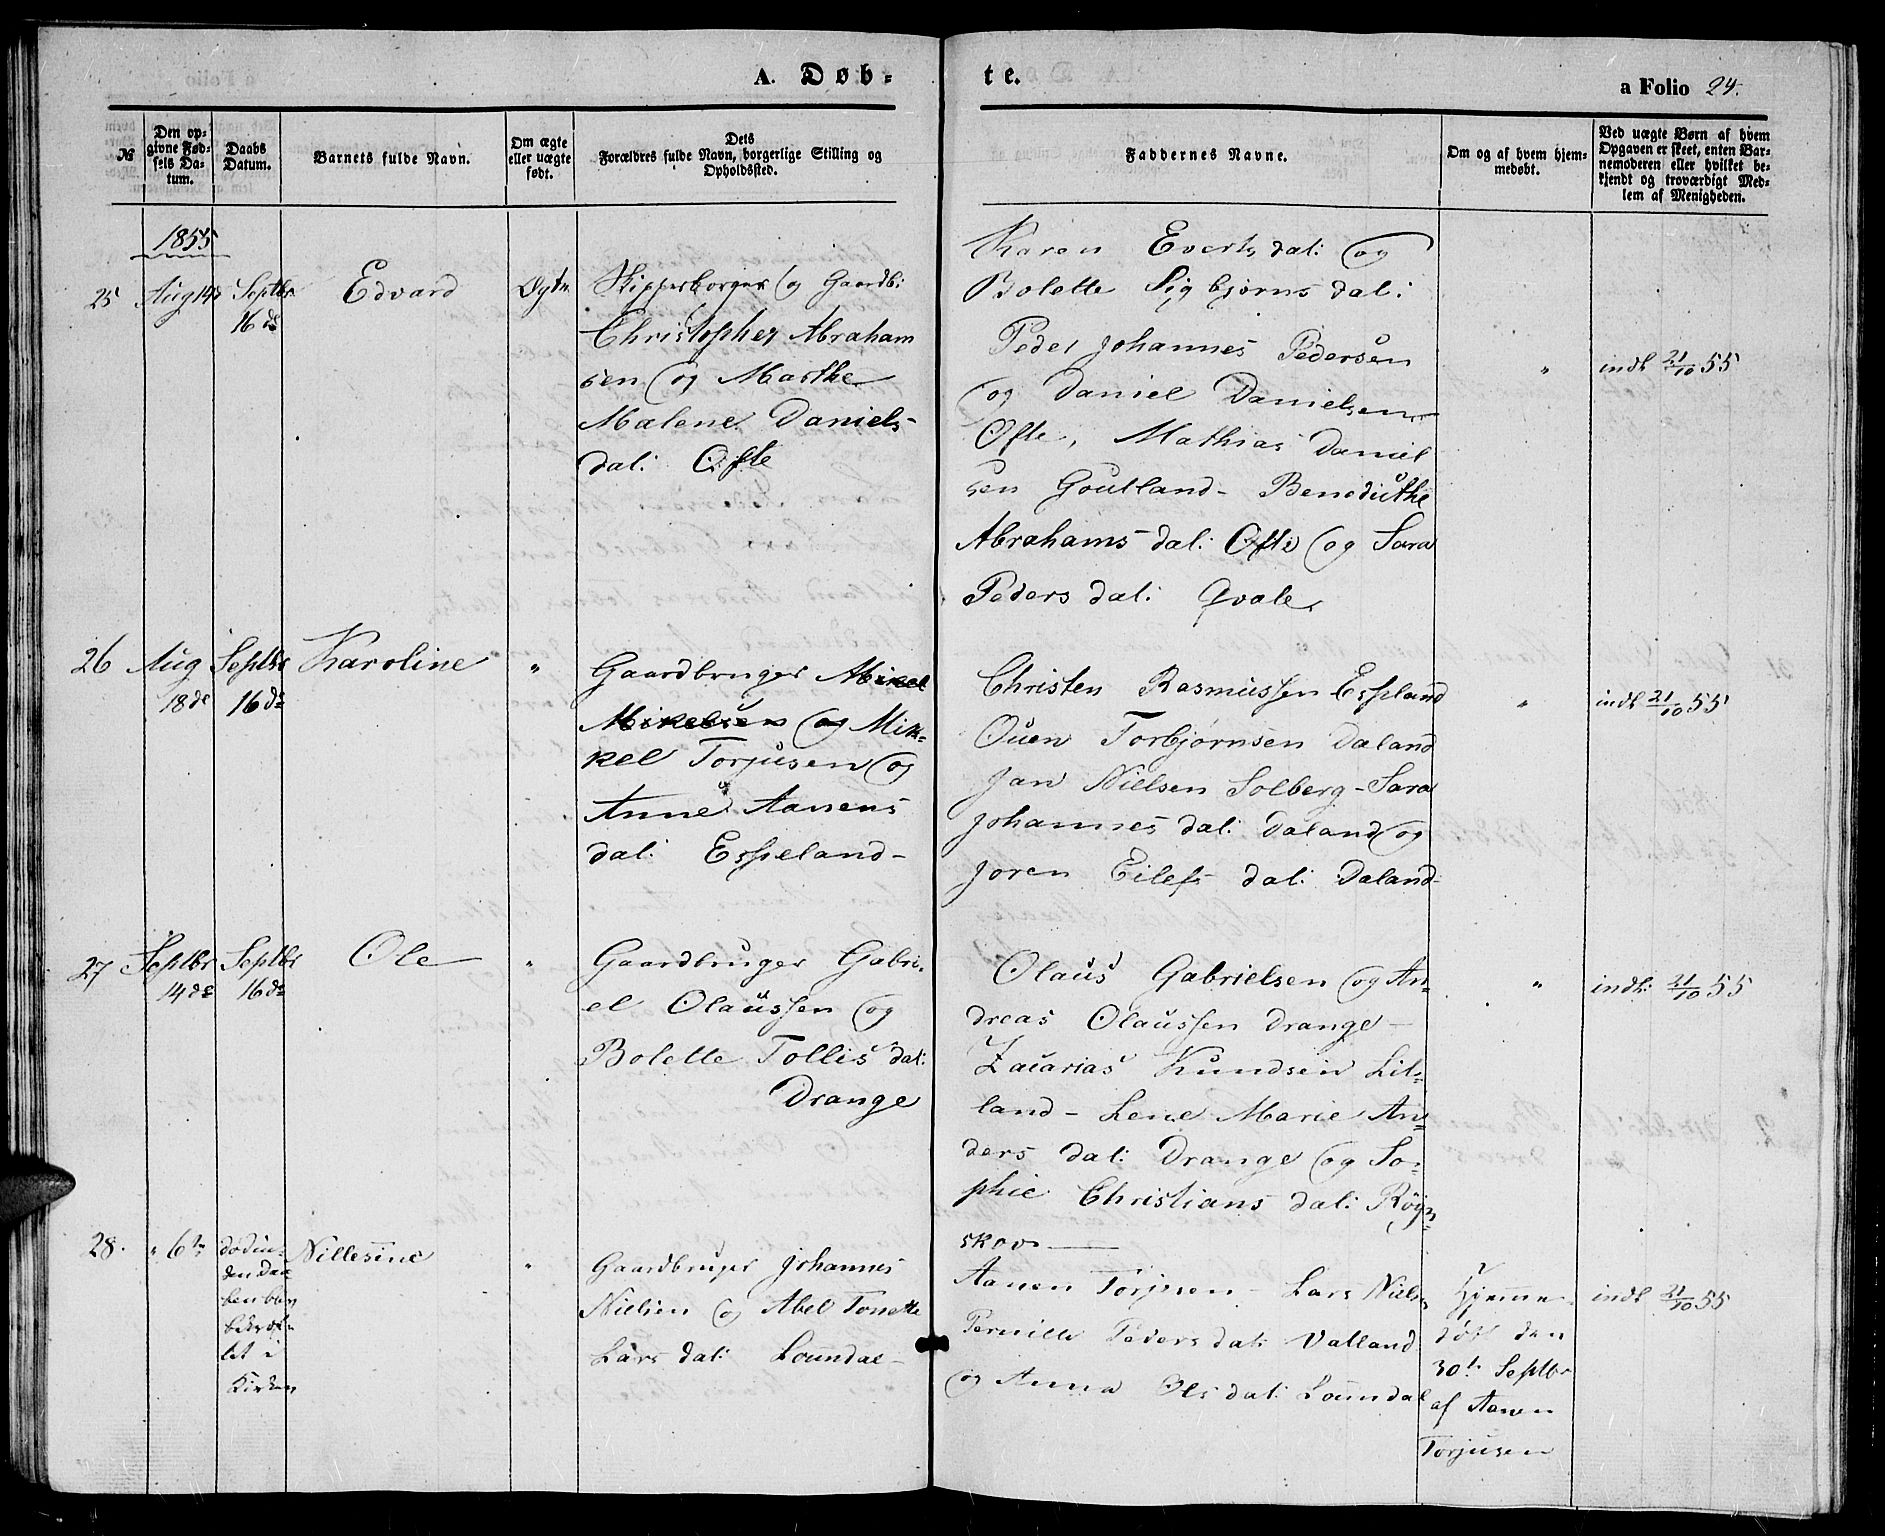 A. Døb-
te.
a Folio 24.
№
Den op-
givne Fød-
sels Da-
tum.
Daabs
Datum.
Barnets fulde Navn.
Om ægte
eller uægte
født.
Dets
Forældres fulde Navn, borgerlige Stilling og
Opholdssted.
Faddernes Navne.
Om og af hvem hjem-
medøbt.
Ved uægte Børn af hvem
Opgaven er skeet, enten Bar-
nemoderen eller hvilket be-
kjendt og troværdigt Med-
lem af Menigheden.
1855
25
Aug 14d
Septbr
16 de
Edvard
Ægte
Skipperborger og Gaardb:
Christopher Abraham
sen og Marthe
Malene Daniels-
dal: Ofte
Karen Everts dal: og
Bolette Sigbjørns dal:
Peder Johannes Pedersen
og Daniel Danielsen
Ofte, Mathias Daniel
sen Goutland - Benedicthe
Abrahams dal: Ofte og Sara
Peders dal: Qvale
"
indl 21/10 55
26
Aug
18 de
Septbr
16 de
Karoline
"
Gaardbruger Mikel
Mikelsen og Mik-
kel Torjusen og
Anne Aanens
dal: Espeland -
Christen Rasmussen Espland
Ouen Torbjørnsen Daland
Jan Nielsen Solberg - Sara
Johannes dal: Daland og
Joren Eilefs dal: Daland -
"
indl 21/10 55
27
Septbr
14 de
Septbr
16 de
Ole
"
Gaardbruger Gabri-
el Olaussen og
Bolette Tollis dal:
Drange
Olaus Gabrielsen og An-
dreas Olaussen Drange -
Zacarias Kundsen Lil-
land - Lene Marie An-
ders dal: Drange og So-
phie Christians dal: Røyn-
skov
"
indl: 21/10 55
28.
" 6te
død in-
den Daa
ben blev
bekræf
tet i
Kirken
Nillesine
"
Gaardbruger Johannes
Nielsen og Abel Tonette
Lars dal: Loundal -
Aanen Torjusen - Lars Niels
Pernille Peders dal: Valland
og Anna Ols dal: Loundal
Hjemme
døbt den
30te Septbr
af Aanen
Torjusen
indl 21/10 55